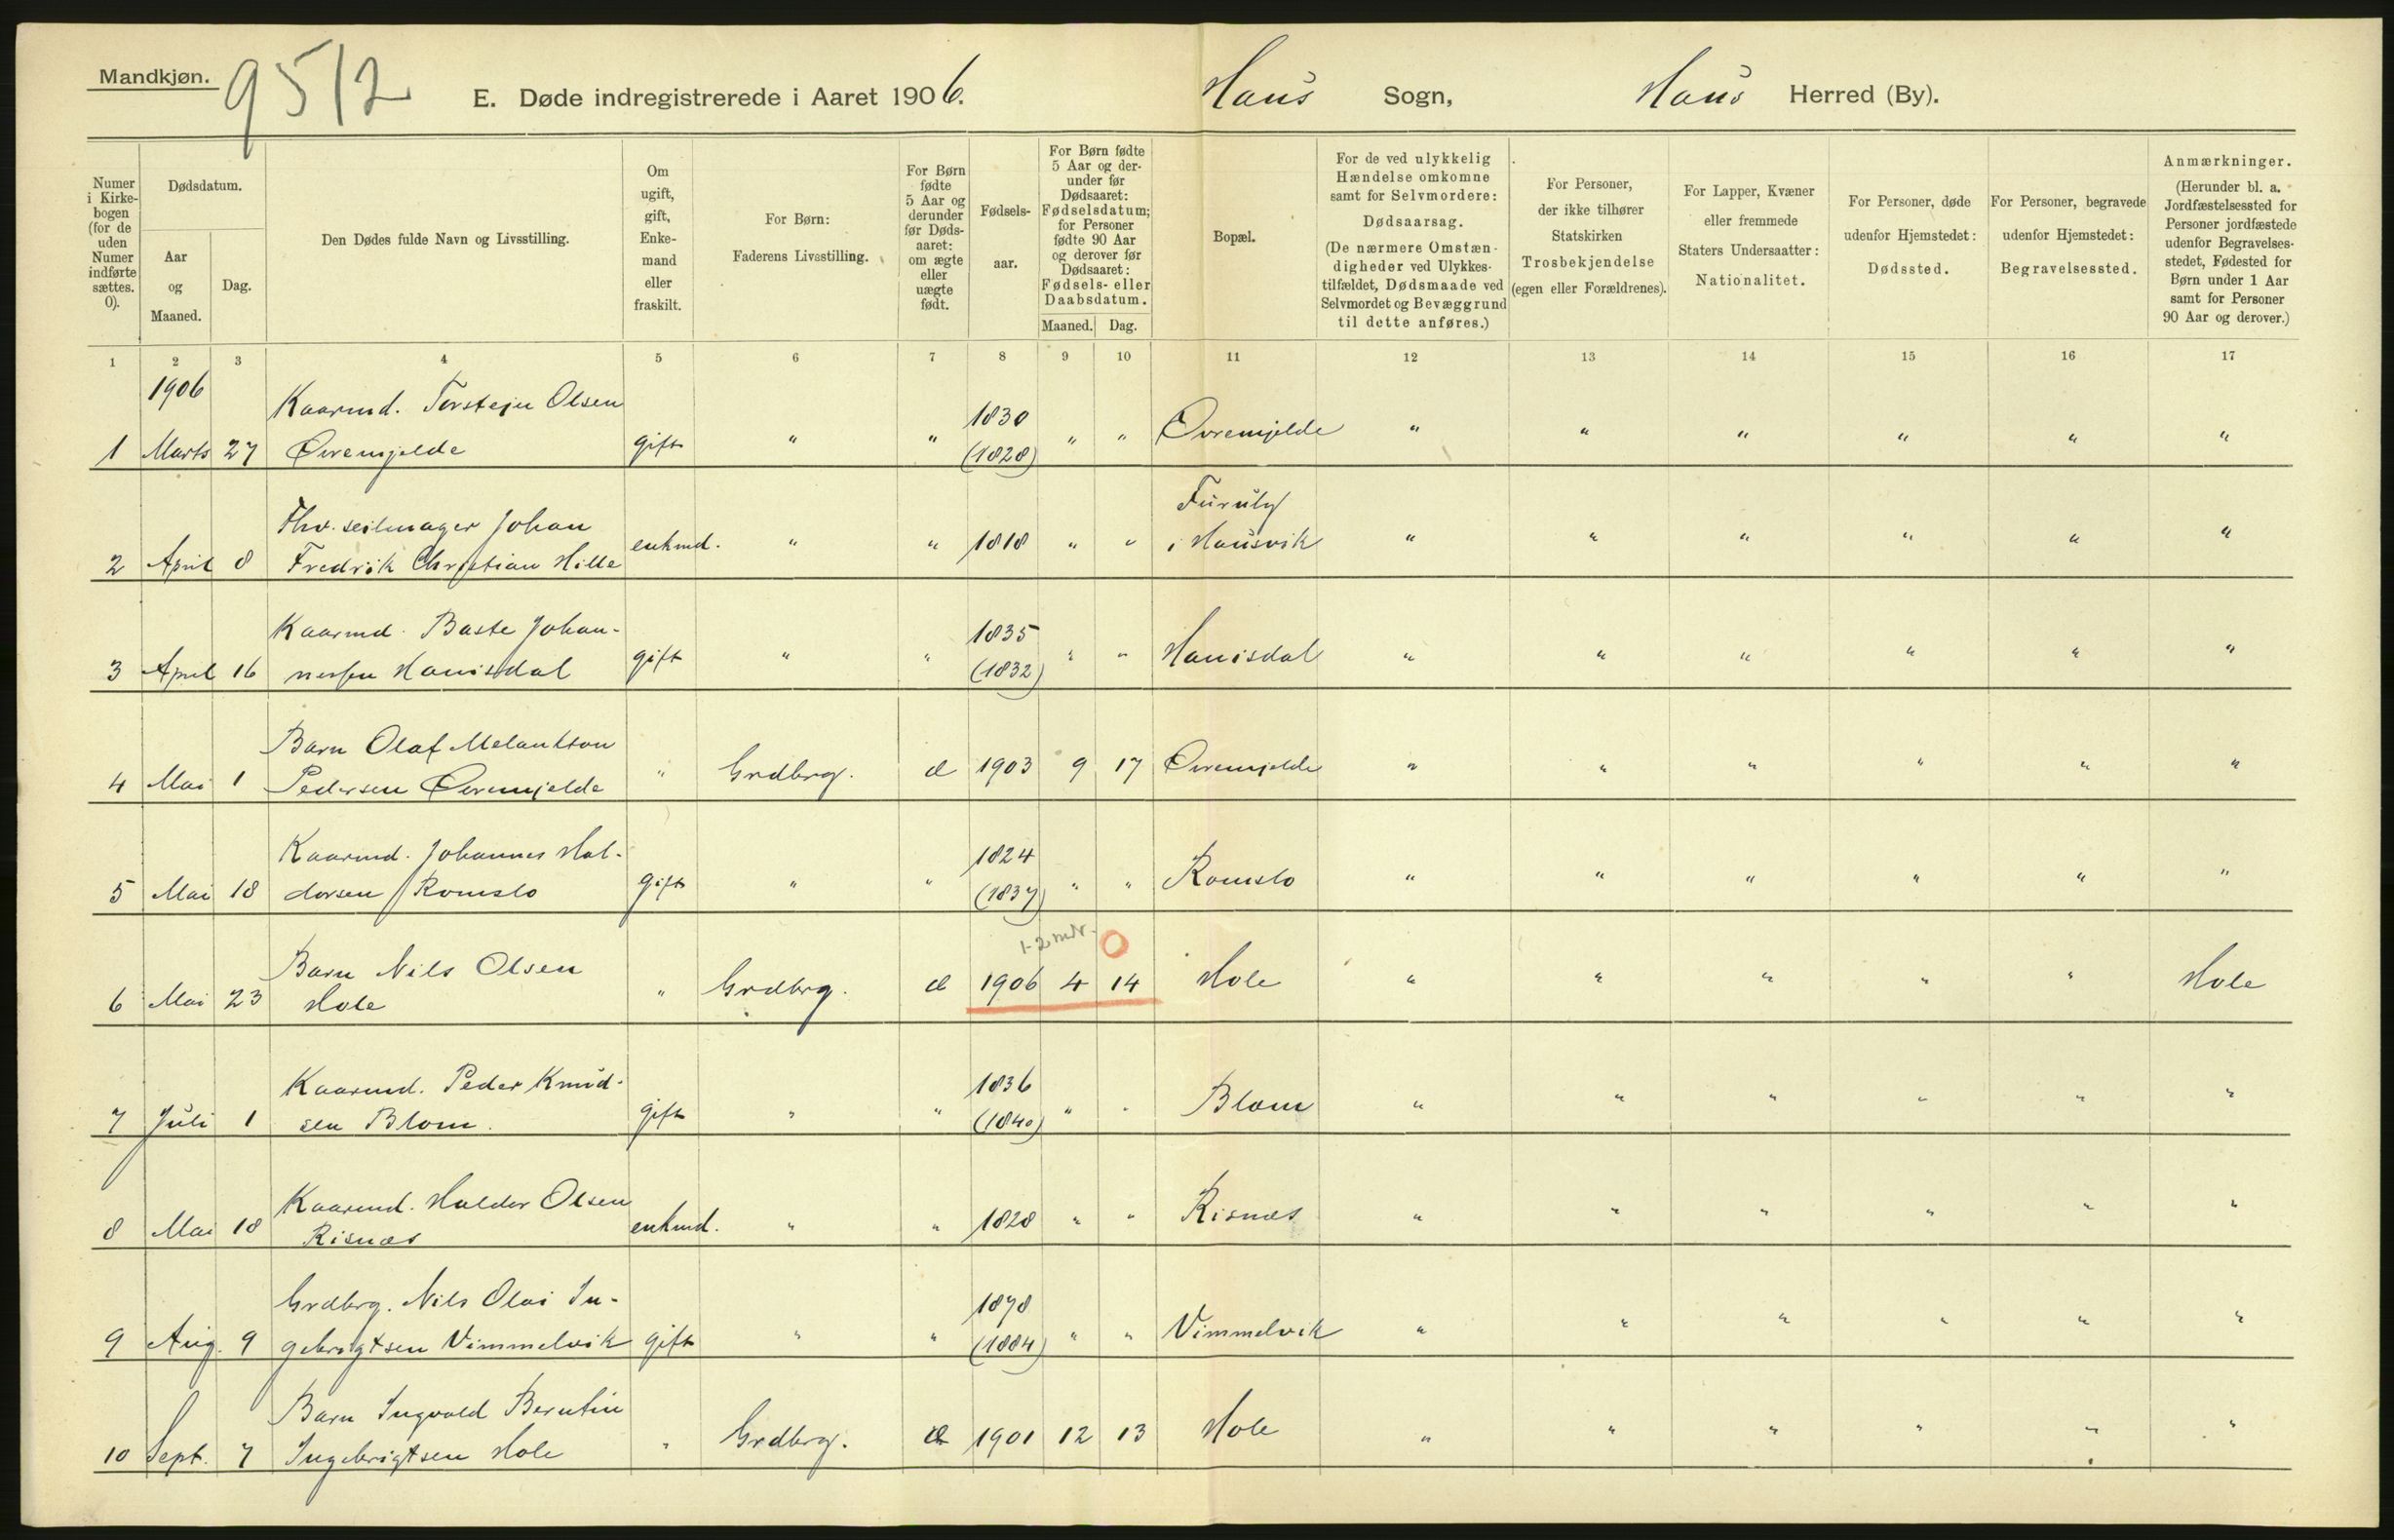 Mandkjøn.
9512
E. Døde indregistrerede i Aaret 1906.
Haus Sogn, Haus Herred (By).
Numer i Kirkebogen (for de uden Numer indførte sættes. 0).
Dødsdatum.
Aar og Maaned.
Dag.
Den Dødes fulde Navn og Livsstilling.
Om ugift, gift, Enkemand eller fraskilt.
For Børn: Faderens Livsstilling.
For Børn fødte 5 Aar og derunder før Dødsaaret: om ægte eller uægte født.
Fødselsaar.
For Børn fødte 5 Aar og derunder før Dødsaaret: Fødselsdatum; for Personer fødte 90 Aar og derover før Dødsaaret: Fødsels- eller Daabsdatum.
Maaned. Dag.
Bopæl.
For de ved ulykkelig Hændelse omkomne samt for Selvmordere: Dødsaarsag. (De nærmere Omstændigheder ved Ulykkestilfældet, Dødsmaade ved Selvmordet og Bevæggrund til dette anføres.)
For Personer, der ikke tilhører Statskirken Trosbekjendelse (egen eller Forældrenes).
For Lapper, Kvæner eller fremmede Staters Undersaatter: Nationalitet.
For Personer, døde udenfor Hjemstedet: Dødssted.
For Personer, begravede udenfor Hjemstedet: Begravelsessted.
Anmærkninger. (Herunder bl. a. Jordfæstelsessted for Personer jordfæstede udenfor Begravelsesstedet, Fødested for Børn under 1 Aar samt for Personer 90 Aar og derover.)
1 2 3 4 5 6 7 8 9 10 11 12 13 14 15 16 17
1906
Kaarmd. Torstein Olsen 1830
1 Marts 27 Øvremjelde gift " " (1828) " " Øvremjelde " " " " " "
Fhv. seilmager Johan Furuly
2 April 8 Fredrik Christian Hille enkmd. " " 1818 " " i Hausvik " " " " " "
Kaarmd. Baste Johan- 1835
3 April 16 nessen Hausdal gift " " (1832) " " Hausdal " " " " " "
Barn Olaf Melankton
4 Mai 1 Pedersen Øvremjelde " Grdbrg. æ 1903 9 17 Øvremjelde " " " " " "
Kaarmd. Johannes Hal- 1824
5 Mai 18 dorsen Romslo gift " " (1837) " " Romslo " " " " " "
1-2 mdr. 0
Barn Nils Olsen
6 Mai 23 Hole " Grdbrg. æ 1906 4 14 Hole " " " " " Hole
Kaarmd. Peder Knud- 1836
7 Juli 1 sen Blom. gift " " (1840) " " Blom " " " " " "
Kaarmd. Haldor Olsen
8 Mai 18 Risnæs enkmd. " " 1828 " " Risnæs " " " " " "
Grdbrg. Nils Olai In- 1878
9 Aug. 9 gebrigtsen Vimmelvik gift " " (1884) " " Vimmelvik " " " " " "
Barn Ingvald Berntin
10 Sept. 7 Ingebrigtsen Hole " Grdbrg. æ 1901 12 13 Hole " " " " " "